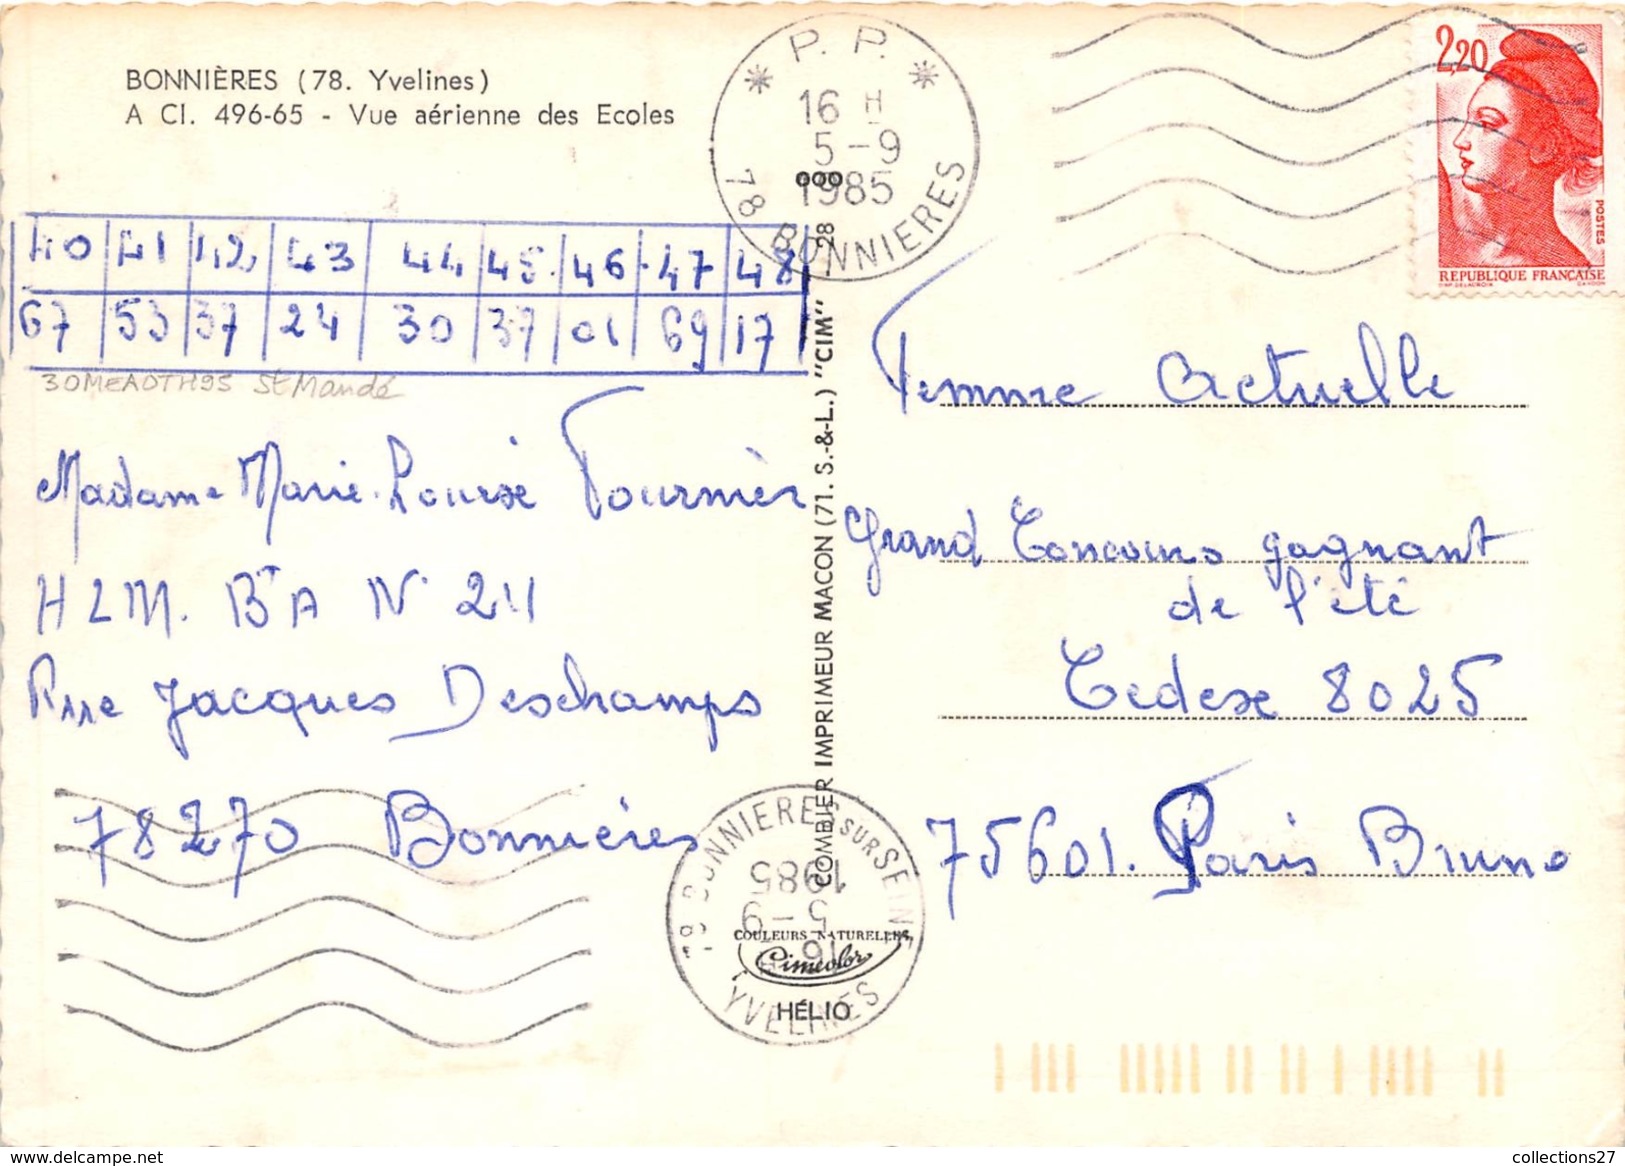 BONNIÈRES (78. Yvelines)
A CI. 496-65 - Vue aérienne des Ecoles
* P. P. *
16 H
5 - 9
1985
78 BONNIERES
2,20
POSTES
REPUBLIQUE FRANÇAISE
40 41 42 43 44 45 46 47 48
67 53 37 24 30 37 01 69 17
30MEAOTH95 St Mandé
Madame Marie-Louise Fournier
HLM. Bt A N° 24
Rue Jacques Deschamps
78270 Bonnières
COMBIER IMPRIMEUR MACON (71. S.-&-L.) "CIM" 28
Femme Actuelle
Grand Concours gagnant
de l'été
Cedex 8025
75601. Paris Bruno
78 BONNIERES SUR SEINE
1985
5 - 9
16
YVELINES
COULEURS NATURELLES
Cimcolor
HÉLIO
https://www.delcampe.net
collections27